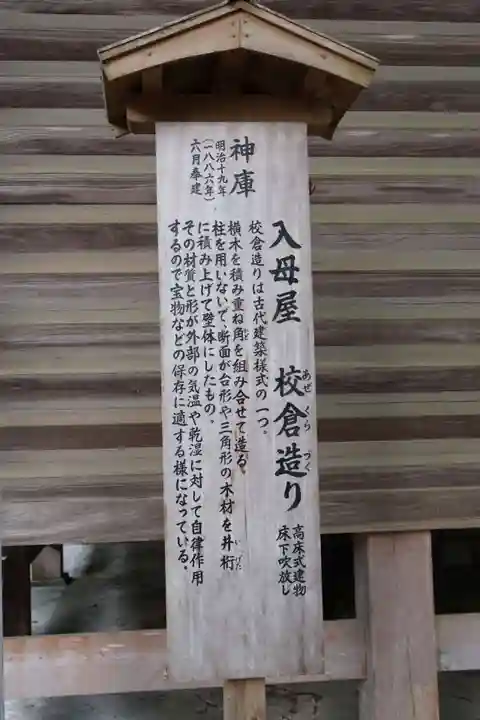 入母屋 校倉造り
あぜくらづく
高床式建物
床下吹放し
神庫
明治十九年
(一八八六年)
六月奉建
校倉造りは古代建築様式の一つ。
横木を積み重ね角を組み合せて造る。
柱を用いないで、断面が台形や三角形の木材を井桁
いげた
に積み上げて壁体にしたもの。
その材質と形が外部の気温や乾湿に対して自律作用
するので宝物などの保存に適する様になっている。